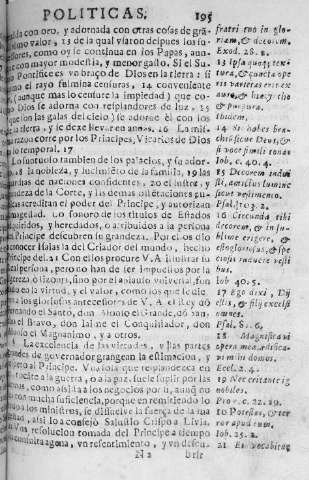 POLITICAS. 195
con oro, y adornada con otras cosas de grã-
simo valor, 13 de la qual
como oy se continua en los Papas, aun-
con mayor modestia, y menor gasto. Si el Su-
Pontifice es vn braço de Dios en la tierra: si
como el rayo fulmina censuras, 14 conveniente
(aunque mas lo censure la impiedad) que co-
Dios se adorna con resplandores de luz, 15
que son las galas del cielo) se adorne èl con los
la tierra, y se dexe llevar en andas. 16 La mis-
corre por los Principes, Vicarios de Dios
lo temporal. 17
Lo suntuoso tambien de los palacios, y su ador-
18 la nobleza, y lucimiento de la familia, 19 las
guardias de naciones confidentes, 20 el lustre, y
grandeza de la Corte, y las demas ostentaciones pu-
acreditan el poder del Principe, y autorizan
magestad. Lo sonoro de los titulos de Estados
adquiridos, y heredados, o atribuidos a la persona
Principe descubren su grandeza. Por ellos diò
conocer Isaias la del Criador del mundo, hecho
Principe del. 21 Con ellos procure V. A. ilustrar su
persona, pero no han de ser impuestos por la
o lisonja, sino por el aplauso vniversal, fun-
en la virtud, y el valor, como los que se die-
los gloriosos antecessores de V. A. el Rey dõ
Fernando el Santo, don Alonso el Grande, dõ San-
el Bravo, don Iaime el Conquistador, don
Alonso el Magnanimo, y a otros.
La excelencia de las virtudes, y las partes
grandes de governador grangean la estimacion, y
al Principe. Vna sola que resplandezca en
tocante a la guerra, o a la paz, suele suplir por las
como assista a los negocios por si, aunq̃ no
con mucha suficiencia, porque en remitiendolo
los ministros, se dissuelve la fuerça de la ma-
assi lo aconsejò Salustio Crispo a Livia.
Vna resolucion tomada del Principe a tiempo
consulta agena, vn resentimiento, y vn descu-
N 2 brir
fratri tuo in glo-
riam, & decorem.
Exod. 28. 2.
13 Ipsa quoq; tex-
tura, & cuncta ope-
ris varietas erit ex
auro, & hiacyntho
& purpura.
Ibidem.
14 Si habes bra-
chium sicut Deus, &
si voce simili tonas
Iob. c. 40. 4.
15 Decorem indui
sti, amictus lumine
sicut vestimento.
Psal. 103. 2.
16 Circunda tibi
decorem, & in su-
blime erigere, &
esto gloriosus, & spe
ciosis induere vesti
bus.
Iob 40. 5.
17 Ego dixi, Dij
estis, & filij excelsi
omnes.
Psal. 81. 6.
18 Magnificavi
opera mea, ædifica-
vi mihi domos.
Eccl. 2. 4.
19 Nec erit ante ig
nobiles.
Prov. c. 22. 29.
20 Potestas, & ter
ror apud eum.
Iob. 25. 2.
21 Et vocabitur